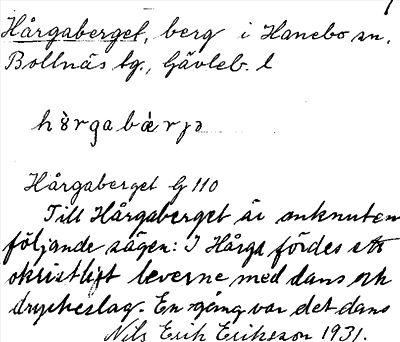 Hårgaberget, berg i Hanebo sn.
Bollnäs tg., Gävleb. l
hòrgabæ̀rjə
Hårgaberget G 110
Till Hårgaberget är anknuten
följande sägen: I Hårga fördes ett
okristligt leverne med dans och
dryckeslag. En gång var det dans
Nils Erik Eriksson 1931.